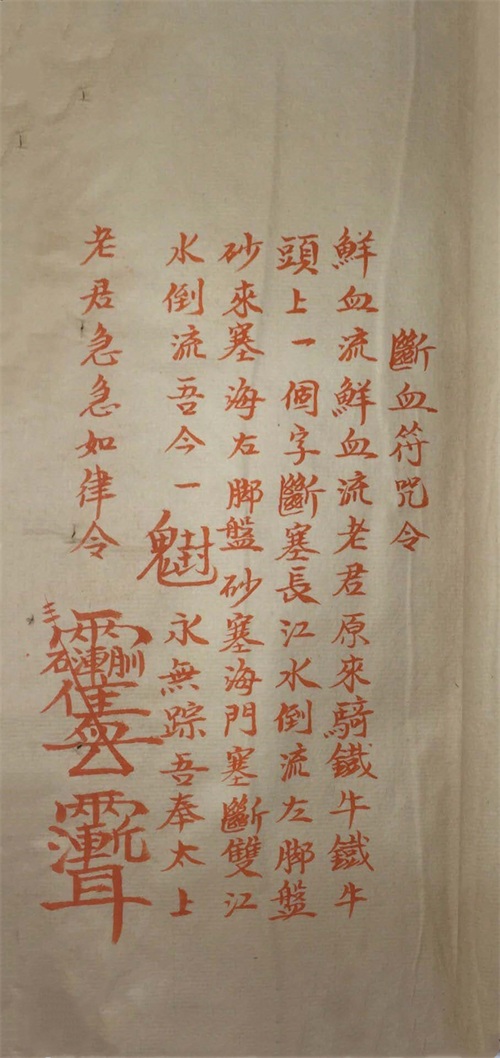 斷血符咒令
鮮血流鮮血流老君原來騎鐵牛鐵牛
頭上一個字斷塞長江水倒流左脚盤
砂來塞海右脚盤砂塞海門塞斷雙江
水倒流吾今一永無踪吾奉太上
老君急急如律令